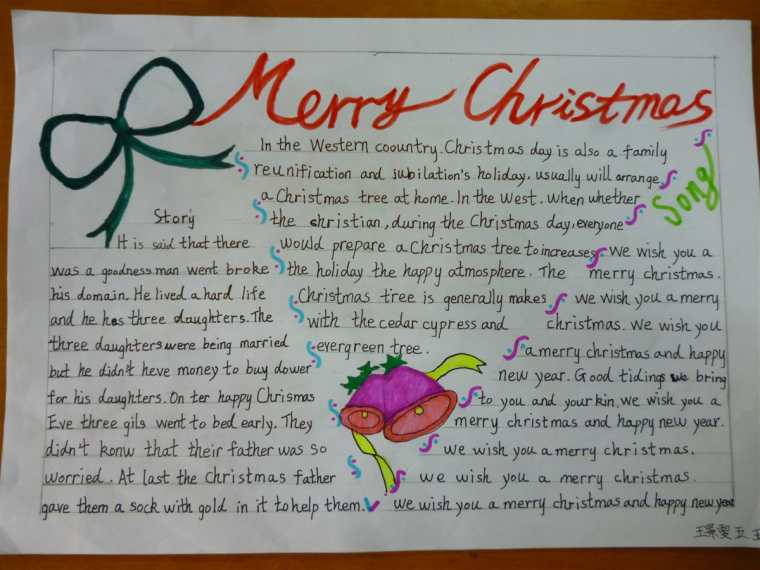 Merry Christmas
In the Western coountry. Christmas day is also a family
reunification and jubilation's holiday. usually will arrange
a Christmas tree at home. In the West. when whether
the christian, during the Christmas day, everyone
would prepare a Christmas tree to increases
the holiday the happy atmosphere. The
Christmas tree is generally makes
with the cedar cypress and
evergreen tree.
Story
It is said that there
was a goodness man went broke
his domain. He lived a hard life
and he hes three daughters. The
three daughters were being married
but he didn't heve money to buy dower
for his daughters. On ter happy Chrismas
Eve three gils went to bed early. They
didn't konw that their father was so
worried. At last the Christmas father
gave them a sock with gold in it to help them.
Song
We wish you a
merry christmas.
we wish you a merry
christmas. We wish you
a merry christmas and happy
new year. Good tidings we bring
to you and your kin. we wish you a
merry christmas and happy new year.
we wish you a merry christmas.
we wish you a merry christmas.
we wish you a merry christmas and happy new year
五